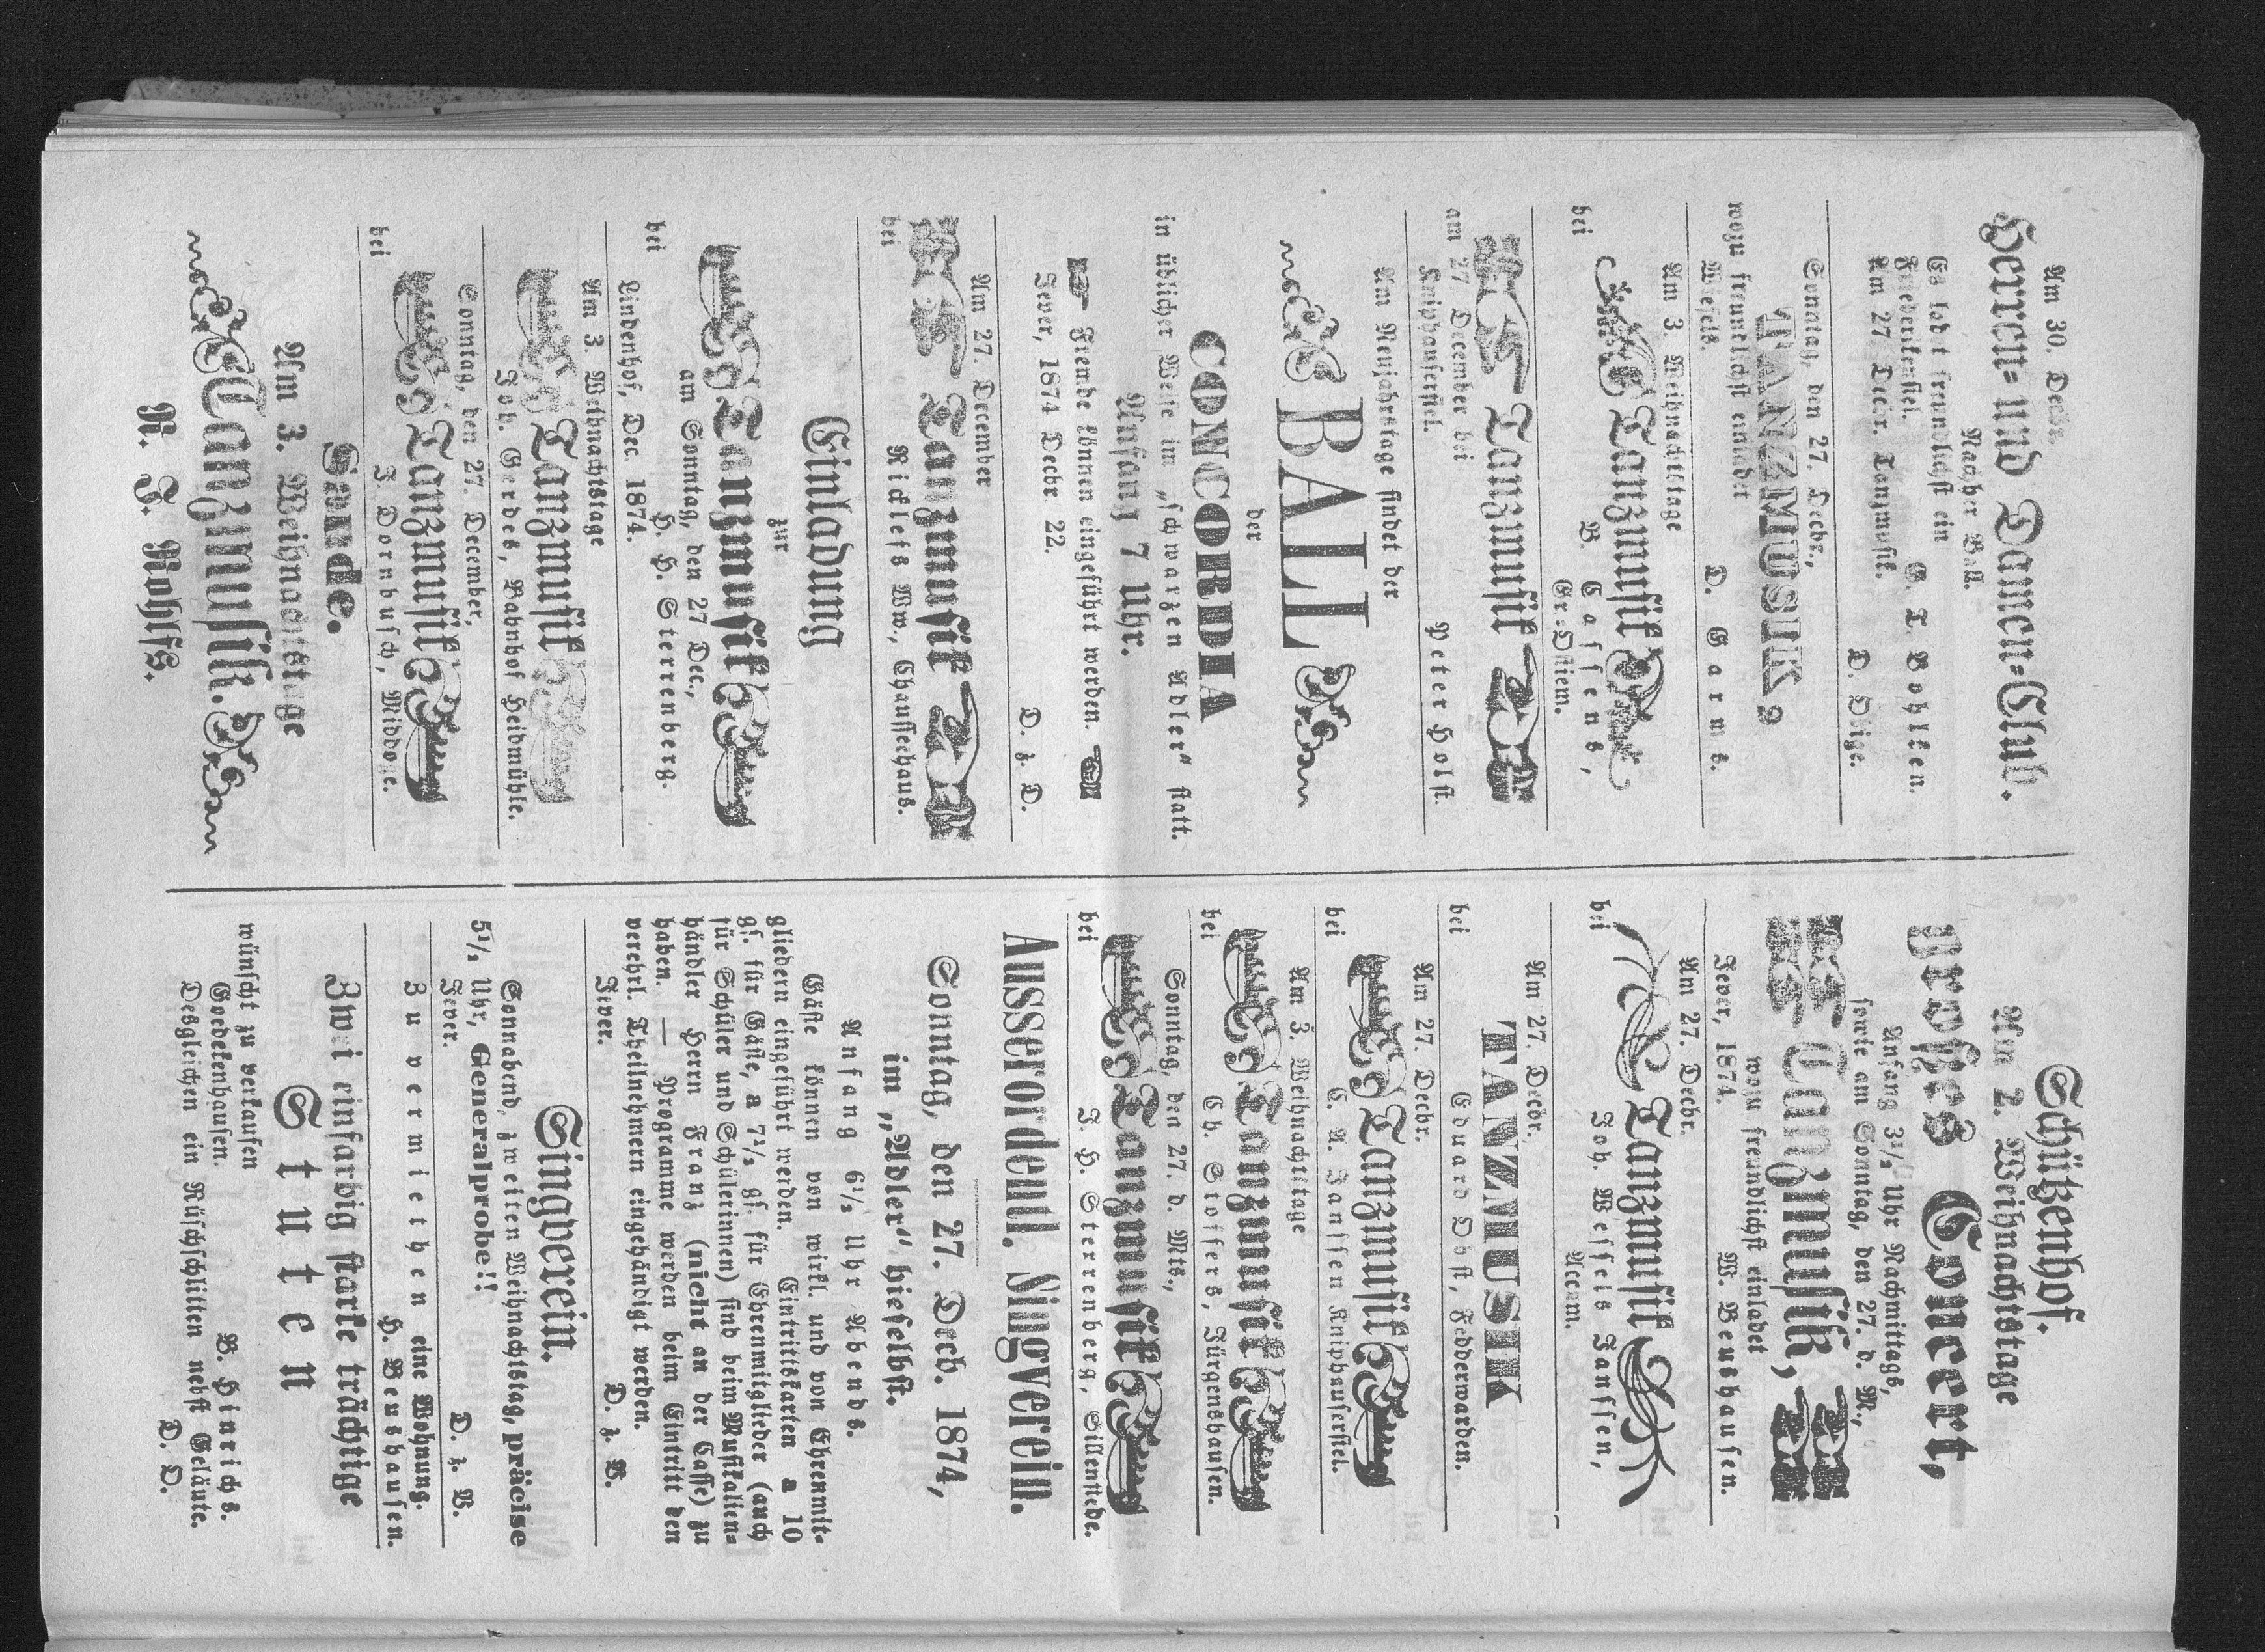 Am 30. Decbr.
Herren- und Damen-Club.
Nachher Ball.
Es ladet freundlichst ein
Friederikensiel. G. T. Bohlken.
Am 27 Decbr. Tanzmusik. D. Olige.
Sonntag, den 27. Decbr.,
TANZMUSIK
wozu freundlichst einladet
Wiefels. D. Garms.
Am 3 Weihnachtstage
Tanzmusik
bei B. Cassens,
Gr-Ostiem.
Tanzmusik
am 27 December bei
Kniphausersiel. Peter Holst.
Am Neujahrstage findet der
BALL
der
CONCORDIA
in üblicher Weise im „schwarzen Adler“ statt.
Anfang 7 Uhr.
Fremde können eingeführt werden.
Jever, 1874 Decbr 22. D. z. D.
Am 27 December
Tanzmusik
bei Rickless Ww., Chausseehaus.
Einladung
zur
Tanzmusik
am Sonntag, den 27 Dec.,
bei H. H. Sterrenberg.
Lindenhof, Dec. 1874.
Am 3. Weihnachtstage
Tanzmusik
Joh. Gerdes, Bahnhof Heidmühle.
Sonntag, den 27. December,
Tanzmusik
bei J. Dornbusch, Middoge.
Sande.
Am 3. Weihnachtstage
Tanzmusik.
R. F. Rohlfs.
Schützenhof.
Am 2. Weihnachtstage
großes Concert,
Anfang 3½ Uhr Nachmittags,
sowie am Sonntag, den 27. d. M.,
Tanzmusik,
wozu freundlichst einladet
Jever, 1874. W. Beushausen.
Am 27. Decbr.
Tanzmusik
bei Joh. Wessels Janssen,
Accum.
Am 27. Decbr.
TANZMUSIK
bei Eduard Dößt, Fedderwarden.
Am 27. Decbr.
Tanzmusik
bei C. A. Janssen Kniphausersiel.
Am 3. Weihnachtstage
Tanzmusik
bei Ch. Stoffers, Jürgenshausen.
Sonntag, den 27. d. Mts.,
Tanzmusik
bei J. H. Sterrenberg, Sillenstede.
Ausserordentl. Singverein.
Sonntag, den 27. Decb. 1874,
im „Adler“ hieselbst.
Anfang 6½ Uhr Abends.
Gäste können von wirkl. und von Ehrenmit-
gliedern eingeführt werden. Eintrittskarten a 10
gf. für Gäste, a 7½ gf. für Ehrenmitglieder (auch
für Schüler und Schülerinnen) sind beim Musikalien-
händler Herrn Franz (nicht an der Casse) zu
haben. — Programme werden beim Eintritt den
verehrl. Theilnehmern eingehändigt werden.
Jever. D. z. V.
Singverein.
Sonnabend, zweiten Weihnachtstag, präcise
5½ Uhr, Generalprobe!!
Jever. D. z. V.
Zu vermiethen eine Wohnung.
H. Beushausen.
Zwei einfarbig starke trächtige
Stuten
wünscht zu verkaufen
Goedekenhausen. B. Hinrichs.
Desgleichen ein Rüschschlitten nebst Geläute.
D. O.